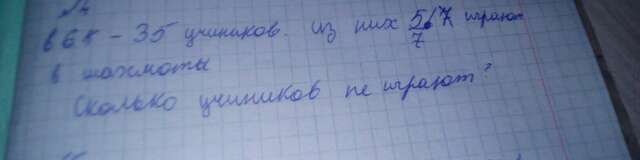 в 6к - 35 учиников. из них 5/7 играют
в шахматы
Сколько учиников не играют?